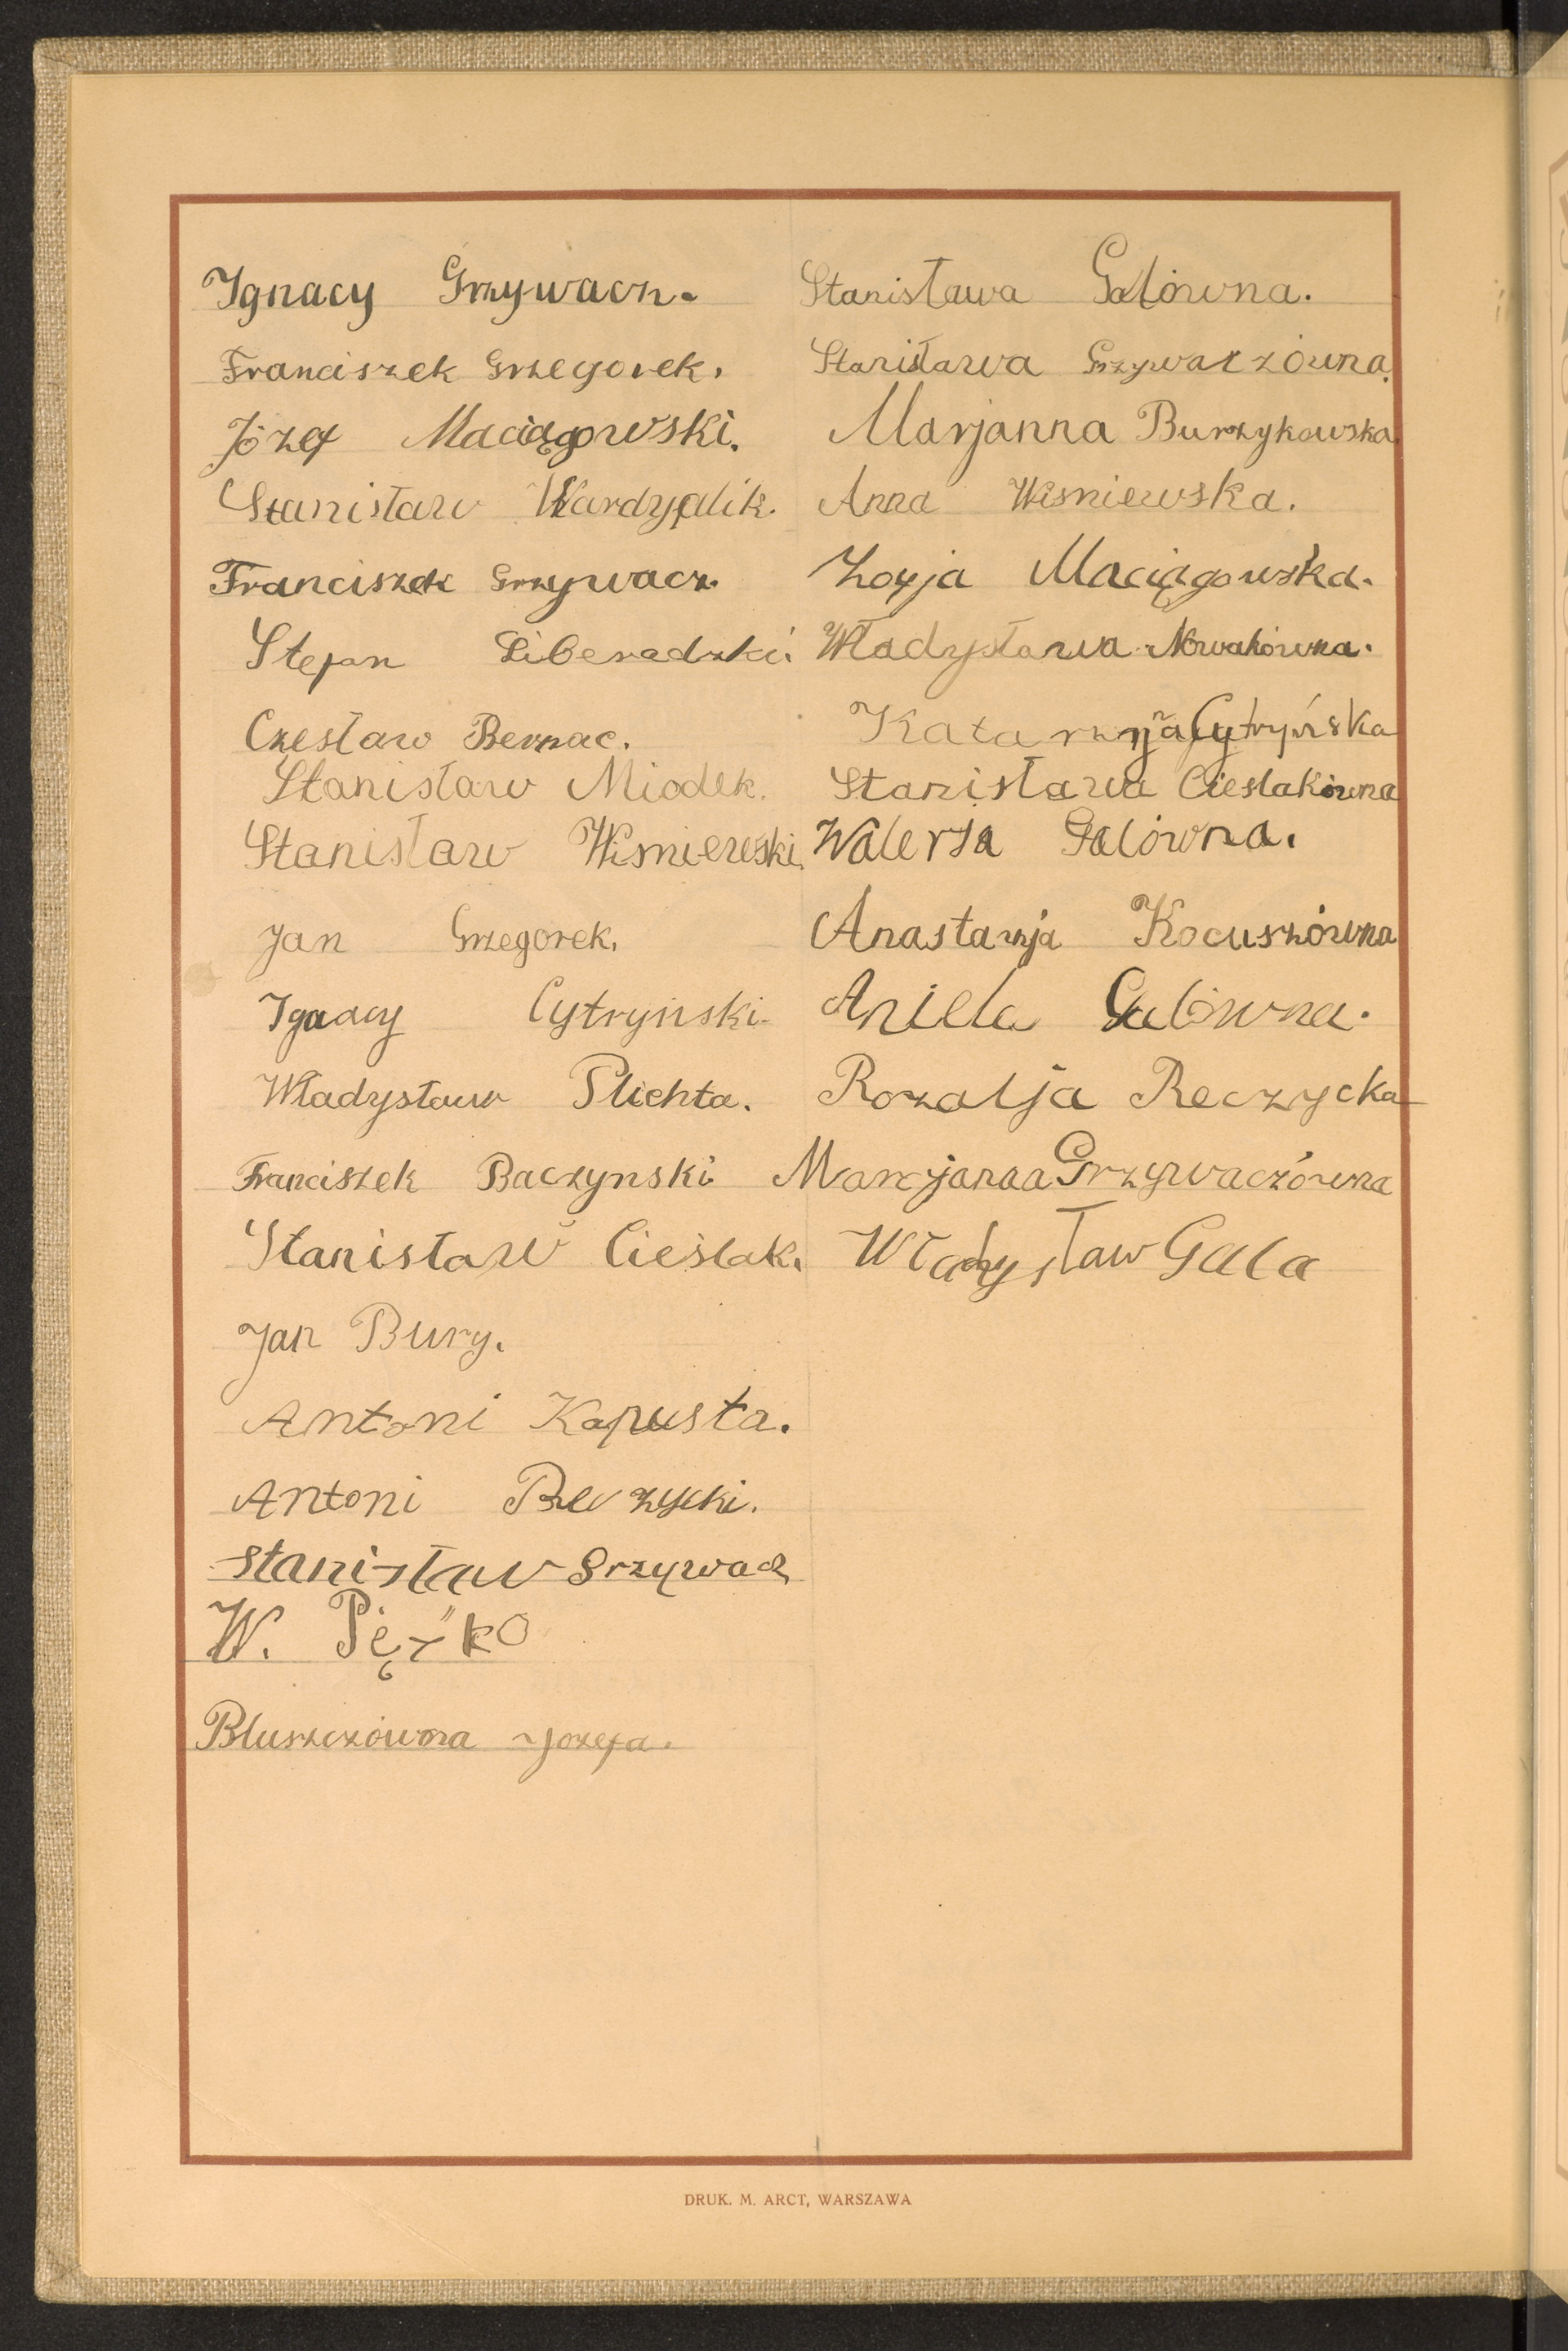 Ignacy Grzywacz.
Franciszek Grzegorek.
Józef Maciągowski.
Stanisław Wardypalik.
Franciszek Grzywacz.
Stefan Liberadzki.
Czesław Bernac.
Stanisław Miodek.
Stanisław Wisniewski.
Jan Grzegorek.
Ignacy Cytryński.
Władysław Plichta.
Franciszek Baczynski
Stanisław Cieślak.
Jan Bury.
Antoni Kapusta.
Antoni Reczycki.
Stanisław Grzywacz
W. Pięśko
Bluszczówna Jozefa.
Stanisława Galówna.
Stanisława Grzywaczówna.
Marjanna Burzykowska.
Anna Wisniewska.
Zofja Maciągowska.
Władysława Nowakówna.
Katarzyna Cytryńska
Stanisława Cieslakówna
Walerja Galówna.
Anastazja Kocuszówna
Aniela Galówna.
Rozalja Reczycka
Marcjanna Grzywaczówna
Władysław Gala
DRUK. M. ARCT, WARSZAWA